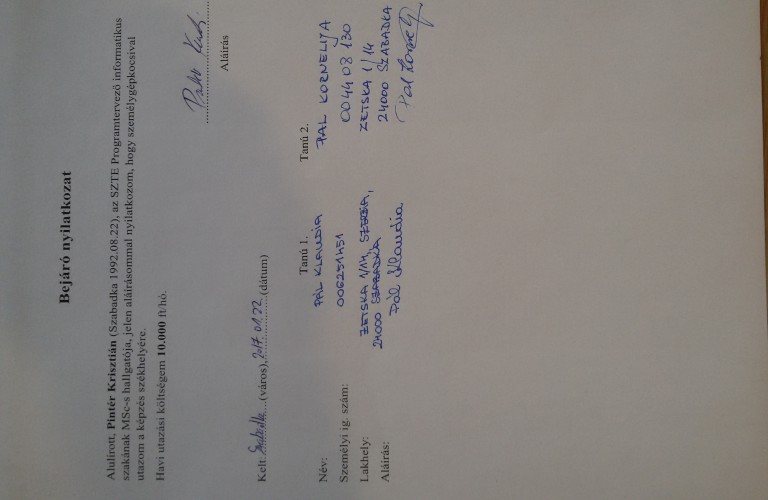 Bejáró nyilatkozat
Alulírott, Pintér Krisztián (Szabadka 1992.08.22), az SZTE Programtervező informatikus
szakának MSc-s hallgatója, jelen aláírásommal nyilatkozom, hogy személygépkocsival
utazom a képzés székhelyére.
Havi utazási költségem 10.000 ft/hó.
Aláírás
Kelt: Szabadka (város), 2017.01.22. (dátum)
Tanú 1. Tanú 2.
Név: PÁL KLAUDIA PÁL KORNELIJA
Személyi ig. szám: 006251451 004408130
Lakhely: ZETSKA 1/14, SZERBIA, ZETSKA 1/14
24000 SZABADKA 24000 SZABADKA
Aláírás: Pál Klaudia Pál